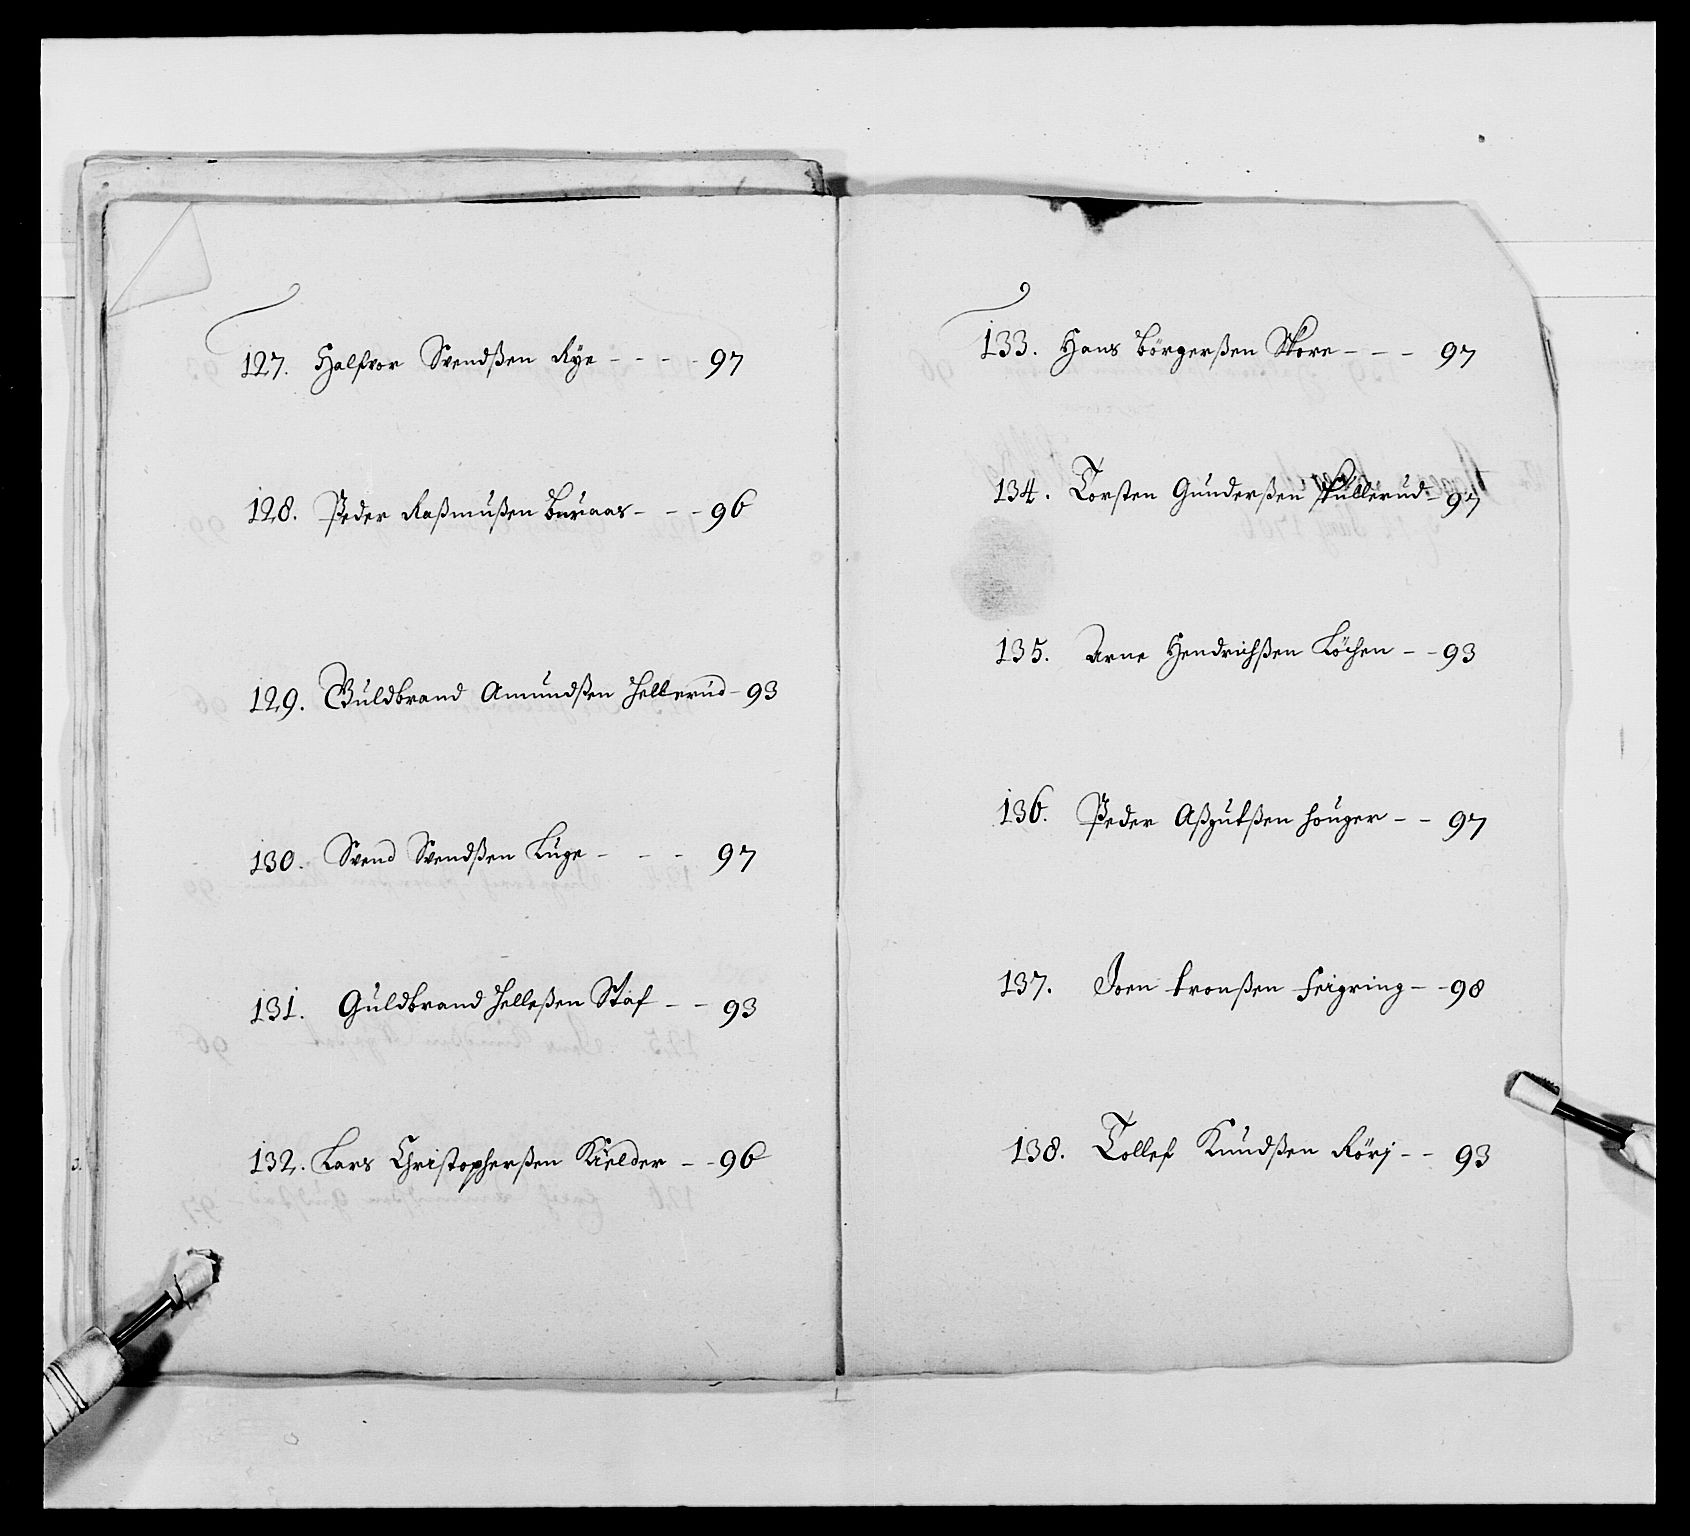 127. Halfvor Svendßen Rÿe - - - - 97
128. Peder Raßmußen Buraas - - - 96
129. Guldbrand Amundßen Hellerud - 93
130. Svend Svendßen Luge - - - 97
131. Guldbrand Helleßen Staf - - 93
132. Lars Christopherßen Kielder - - 96
133. Hans Börgerßen Skore - - - 97
134. Torsten Gunderßen Skullerud - 97
135. Arne Hendrichßen Löchen - - 93
136. Peder Aßgutßen Houger - - 97
137. Joen tronßen Feigring - - 98
138. Tollef Knudßen Rörj - - 93